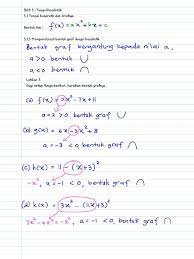 BAB 3 : Fungsi Kuadratik
3.1 Fungsi Kuadratik dan Grafnya
Bentuk Am : f(x) = ax² + bx + c
Bentuk graf bergantung kepada nilai a,
a > 0 bentuk ∪
a < 0 bentuk ∩
Latihan 1
Bagi setiap fungsi berikut, tentukan bentuk grafnya.
(a) f(x) = 2x² - 7x + 11
a = 2 > 0, bentuk graf ∪
(b) g(x) = 6x - 3x² + 8
a = -3 < 0, bentuk graf ∩
(c) h(x) = 11 - (x+3)²
-x², a = -1 < 0, bentuk graf ∩
(d) k(x) = 3x² - (2x+3)²
3x² - 4x² = -x², a = -1 < 0, bentuk graf ∩